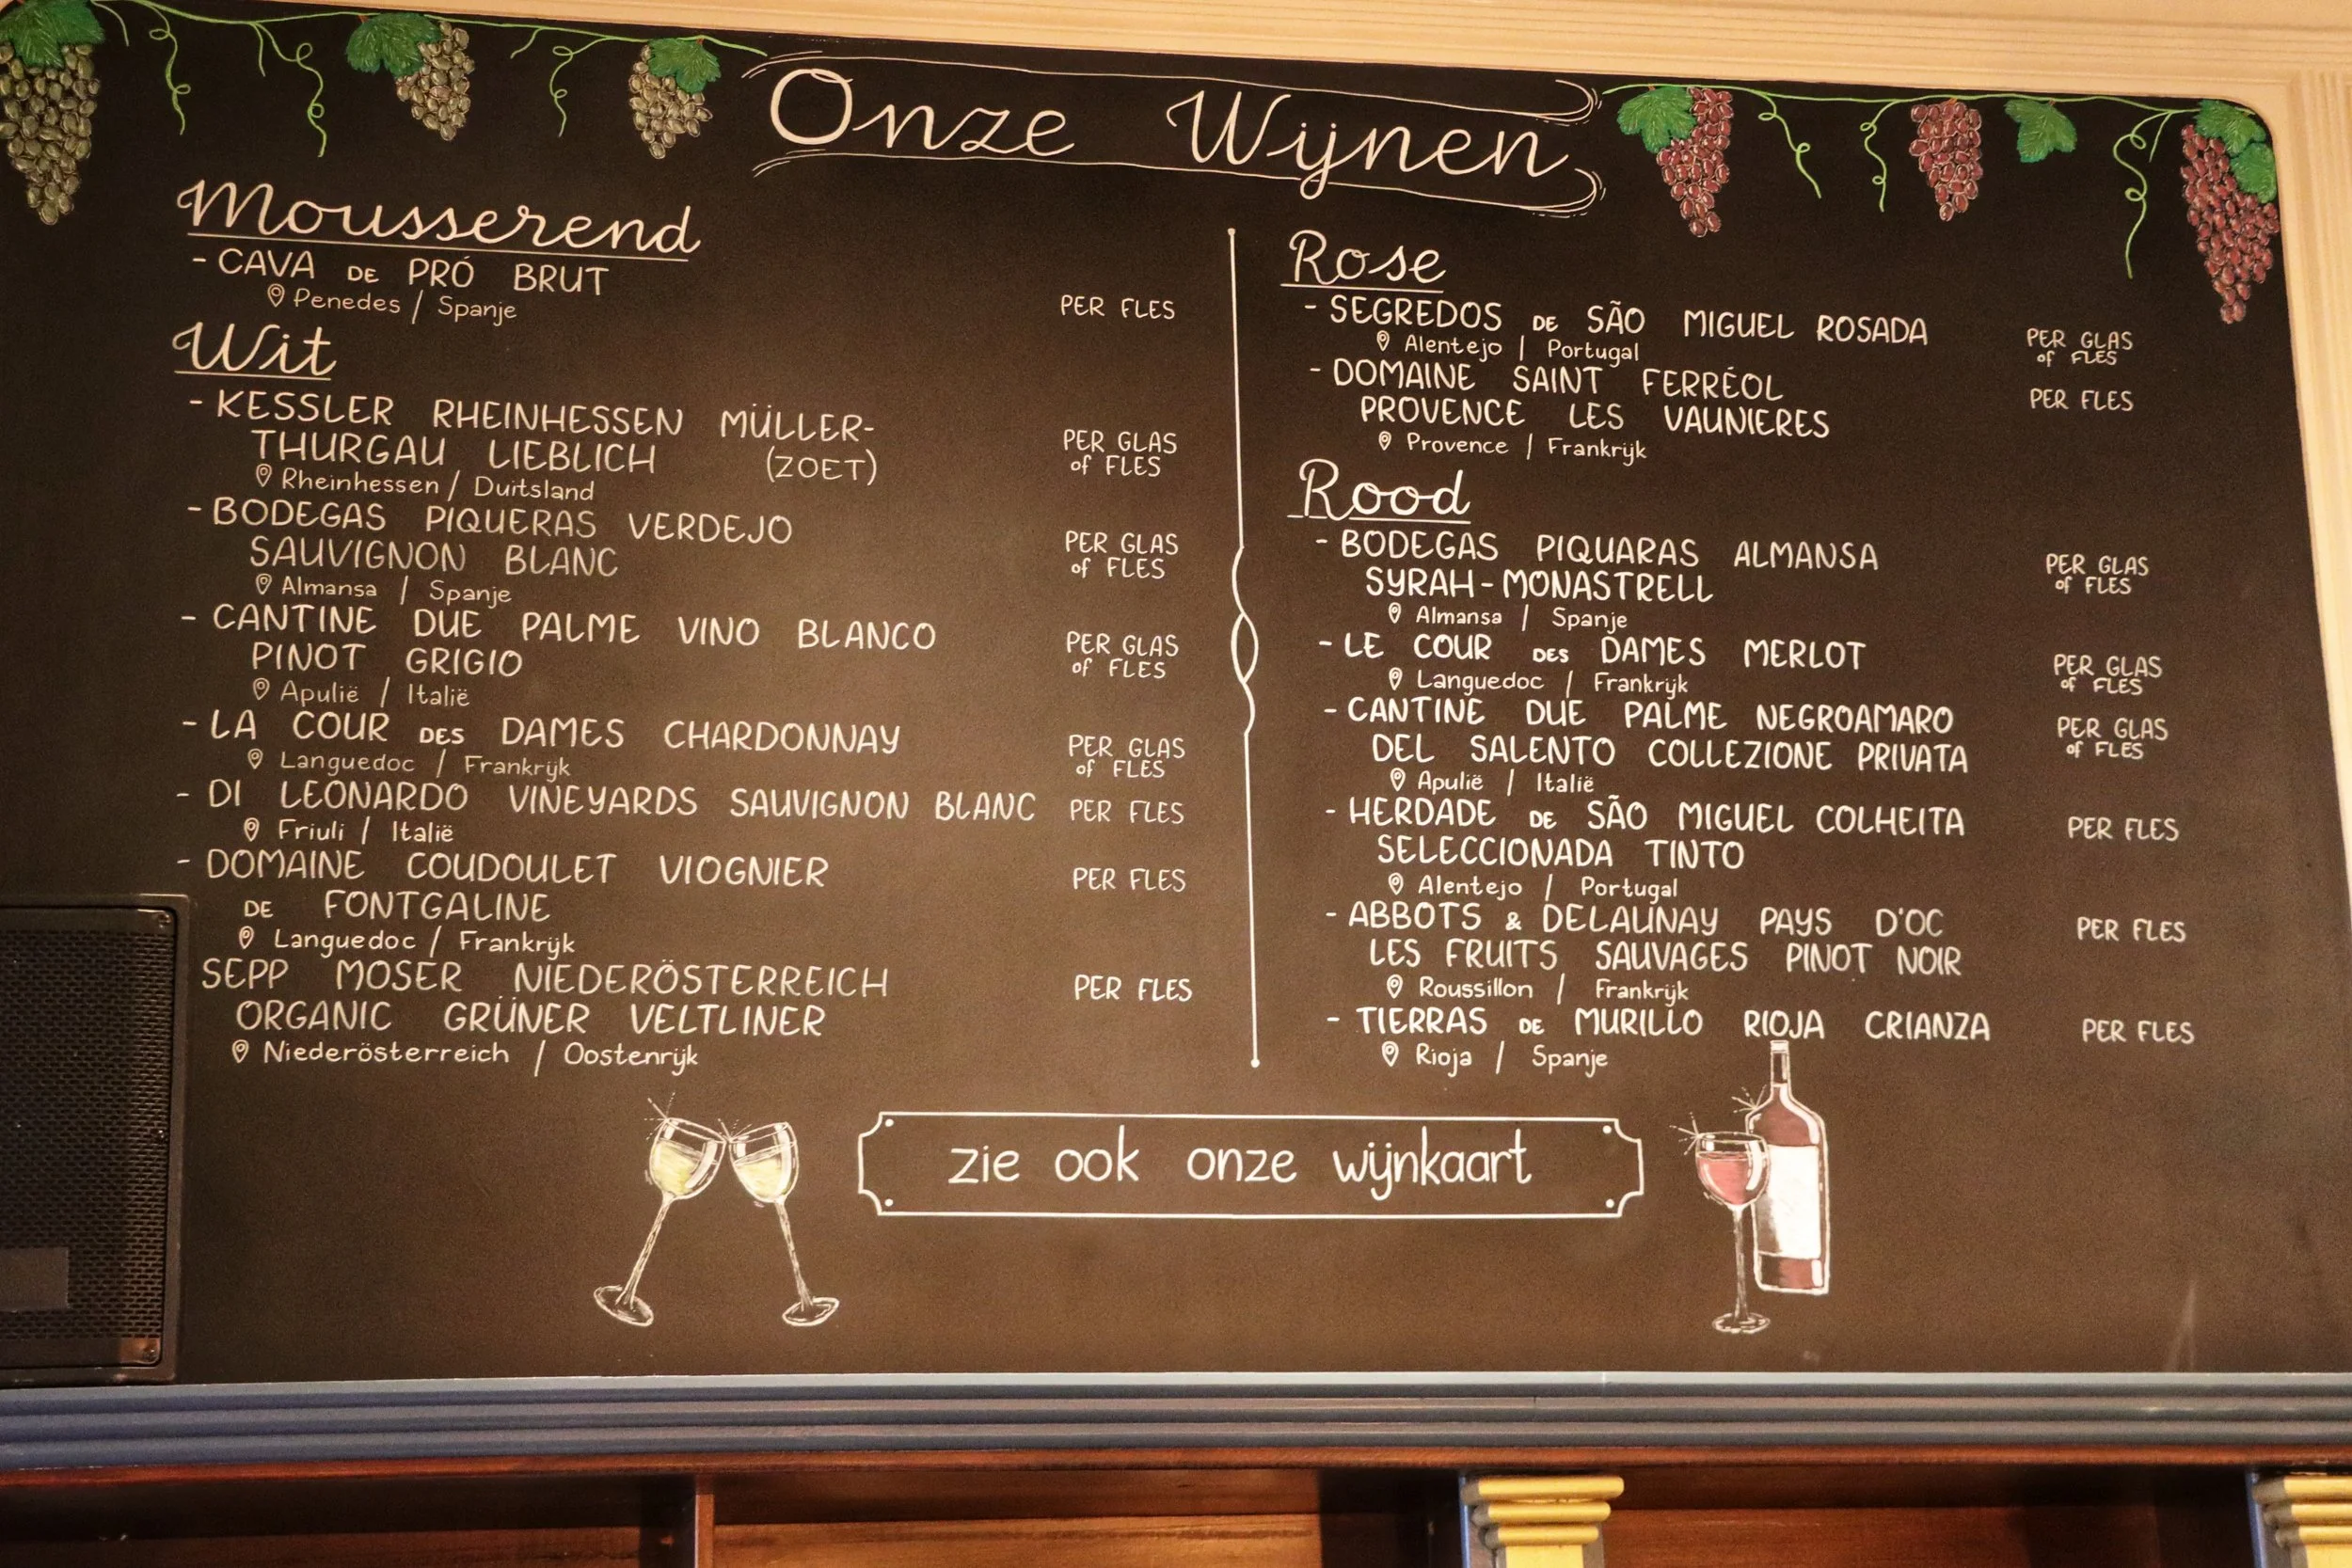 Onze Wijnen
Mousserend
- CAVA DE PRÓ BRUT
Penedes / Spanje
PER FLES
Wit
- KESSLER RHEINHESSEN MÜLLER-
THURGAU LIEBLICH (ZOET)
Rheinhessen / Duitsland
PER GLAS
of FLES
- BODEGAS PIQUERAS VERDEJO
SAUVIGNON BLANC
Almansa / Spanje
PER GLAS
of FLES
- CANTINE DUE PALME VINO BLANCO
PINOT GRIGIO
Apulië / Italië
PER GLAS
of FLES
- LA COUR DES DAMES CHARDONNAY
Languedoc / Frankrijk
PER GLAS
of FLES
- DI LEONARDO VINEYARDS SAUVIGNON BLANC PER FLES
Friuli / Italië
- DOMAINE COUDOULET VIOGNIER
DE FONTGALINE
Languedoc / Frankrijk
PER FLES
SEPP MOSER NIEDERÖSTERREICH
ORGANIC GRÜNER VELTLINER
Niederösterreich / Oostenrijk
PER FLES
Rose
- SEGREDOS DE SÃO MIGUEL ROSADA
Alentejo | Portugal
PER GLAS
of FLES
- DOMAINE SAINT FERRÉOL
PROVENCE LES VAUNIERES
Provence | Frankrijk
PER FLES
Rood
- BODEGAS PIQUARAS ALMANSA
SYRAH-MONASTRELL
Almansa / Spanje
PER GLAS
of FLES
- LE COUR DES DAMES MERLOT
Languedoc / Frankrijk
PER GLAS
of FLES
- CANTINE DUE PALME NEGROAMARO
DEL SALENTO COLLEZIONE PRIVATA
Apulië / Italië
PER GLAS
of FLES
- HERDADE DE SÃO MIGUEL COLHEITA
SELECCIONADA TINTO
Alentejo / Portugal
PER FLES
- ABBOTS & DELAUNAY PAYS D'OC
LES FRUITS SAUVAGES PINOT NOIR
Roussillon / Frankrijk
PER FLES
- TIERRAS DE MURILLO RIOJA CRIANZA
Rioja / Spanje
PER FLES
zie ook onze wijnkaart